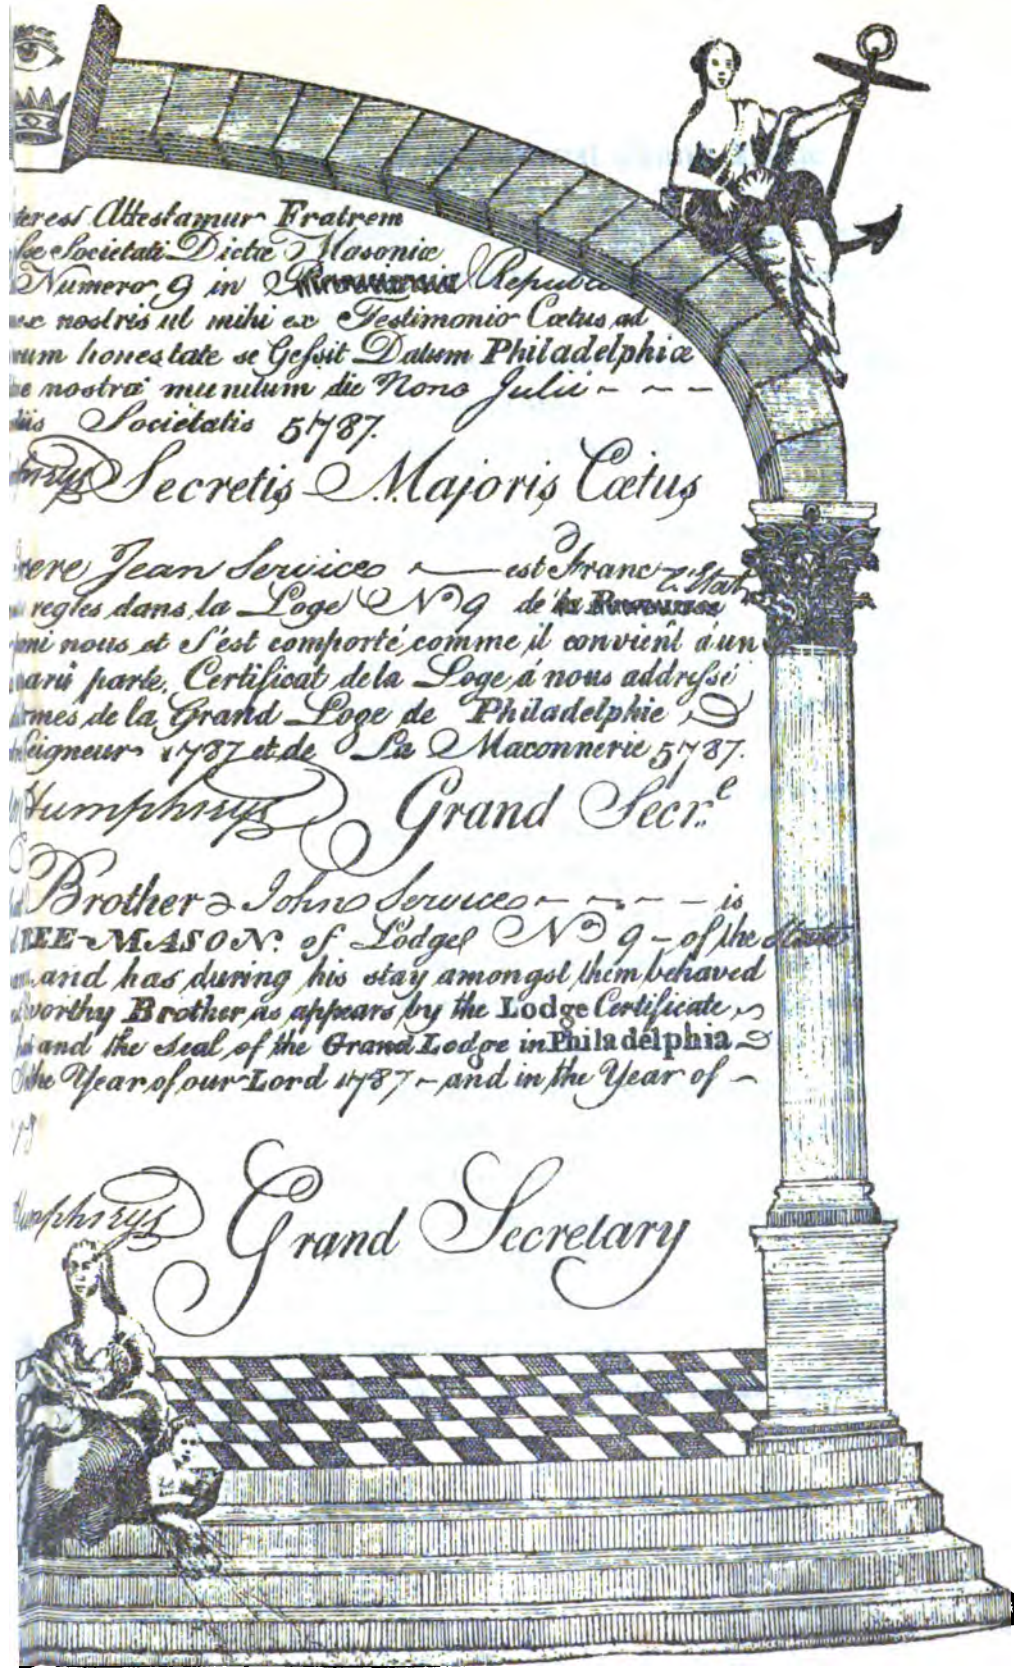 Attestamur Fratrem
Societati Dictæ Masonicæ
Numero 9 in
nostris ut mihi ex Testimonio Cœtus ad
honestate se Gessit Datum Philadelphiæ
nostræ munitum die Nono Julii - - -
Societatis 5787.
Secretis Majoris Cœtus
Jean Service — est Franc
regles dans la Loge No 9 de l'Etat
nous et s'est comporté comme il convient á un
parte. Certificat dela Loge á nous addressé
de la Grand Loge de Philadelphie
1787 et de La Maconnerie 5787.
Humphreys Grand Secr.e
Brother John Service - - - - is
MASON. of Lodge No 9 - of the State
and has during his stay amongst them behaved
worthy Brother as appears by the Lodge Certificate
and the Seal of the Grand Lodge in Philadelphia
the Year of our Lord 1787 - and in the Year of -
Grand Secretary